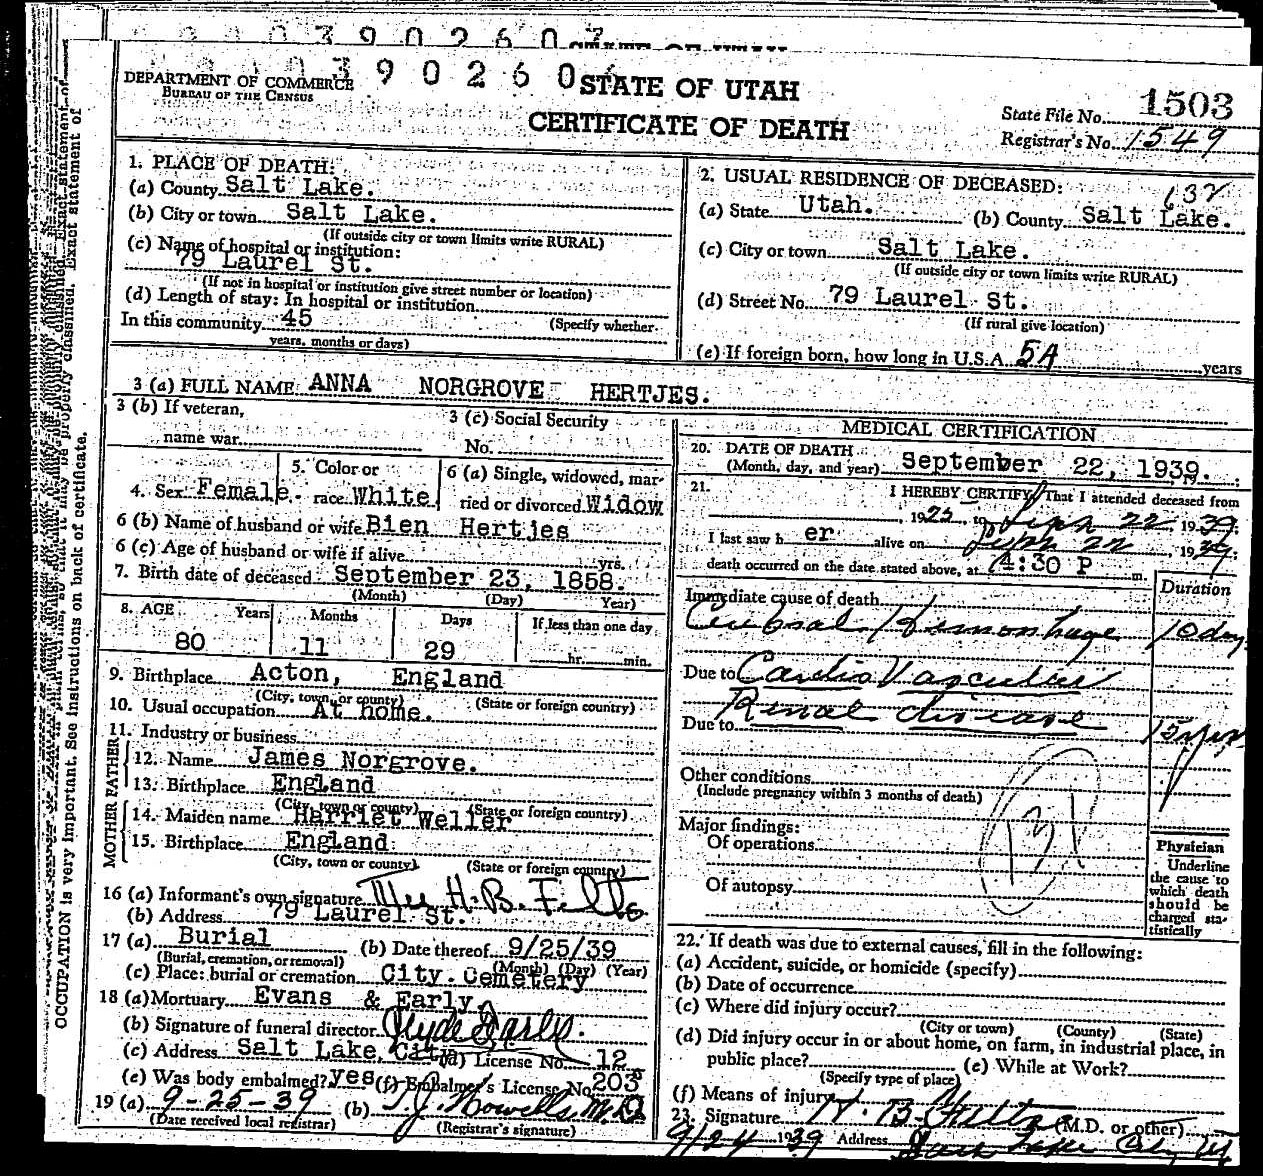 0 3 9 0 2 6 0 7 STATE OF UTAH
0 3 9 0 2 6 0
DEPARTMENT OF COMMERCE
BUREAU OF THE CENSUS
STATE OF UTAH
CERTIFICATE OF DEATH
State File No. 1503
Registrar's No. 1549
1. PLACE OF DEATH:
(a) County Salt Lake.
(b) City or town Salt Lake.
(If outside city or town limits write RURAL)
(c) Name of hospital or institution:
79 Laurel St.
(If not in hospital or institution give street number or location)
(d) Length of stay: In hospital or institution
In this community 45 (Specify whether
years, months or days)
2. USUAL RESIDENCE OF DECEASED: 632
(a) State Utah. (b) County Salt Lake.
(c) City or town Salt Lake.
(If outside city or town limits write RURAL)
(d) Street No. 79 Laurel St.
(If rural give location)
(e) If foreign born, how long in U.S.A. 54 years
3 (a) FULL NAME ANNA NORGROVE HERTJES.
3 (b) If veteran,
name war
3 (c) Social Security
No.
4. Sex Female.
5. Color or
race White
6 (a) Single, widowed, mar-
ried or divorced Widow
6 (b) Name of husband or wife Bien Hertjes
6 (c) Age of husband or wife if alive yrs.
7. Birth date of deceased September 23, 1858.
(Month) (Day) Year)
8. AGE Years Months Days If less than one day
80 11 29 hr. min.
9. Birthplace Acton, England
(City, town, or county) (State or foreign country)
10. Usual occupation At home.
11. Industry or business
FATHER
12. Name James Norgrove.
13. Birthplace England
(City, town or county) (State or foreign country)
MOTHER
14. Maiden name Harriet Weller
15. Birthplace England
(City, town or county) (State or foreign country)
16 (a) Informant's own signature H. B. Felts
(b) Address 79 Laurel St.
17 (a) Burial (b) Date thereof 9/25/39
(Burial, cremation, or removal) (Month) (Day) (Year)
(c) Place: burial or cremation City Cemetery
18 (a) Mortuary Evans & Early
(b) Signature of funeral director Clyde Early.
(c) Address Salt Lake, City (d) License No. 12
(e) Was body embalmed? yes (f) Embalmer's License No. 203
19 (a) 9-25-39 (b) T. J. Howells, M.D.
(Date received local registrar) (Registrar's signature)
MEDICAL CERTIFICATION
20. DATE OF DEATH
(Month, day, and year) September 22, 1939.
21. I HEREBY CERTIFY, That I attended deceased from
, 1925 to Sept 22 1939;
I last saw h er alive on Sept 22, 1939;
death occurred on the date stated above, at 4:30 P m.
Duration
Immediate cause of death
Cerebral Hemorrhage 10 days
Due to Cardio Vascular
Renal disease
Due to 15 yrs
Other conditions
(Include pregnancy within 3 months of death)
Major findings:
Of operations
Of autopsy
131
Physician
Underline
the cause to
which death
should be
charged sta-
tistically
22. If death was due to external causes, fill in the following:
(a) Accident, suicide, or homicide (specify)
(b) Date of occurrence
(c) Where did injury occur?
(City or town) (County) (State)
(d) Did injury occur in or about home, on farm, in industrial place, in
public place? (e) While at Work?
(Specify type of place)
(f) Means of injury
23. Signature H. B. Felts (M.D. or other)
9/24 1939 Address Salt Lake City Ut
OCCUPATION is very important. See instructions on back of certificate.
properly classified. Exact statement of